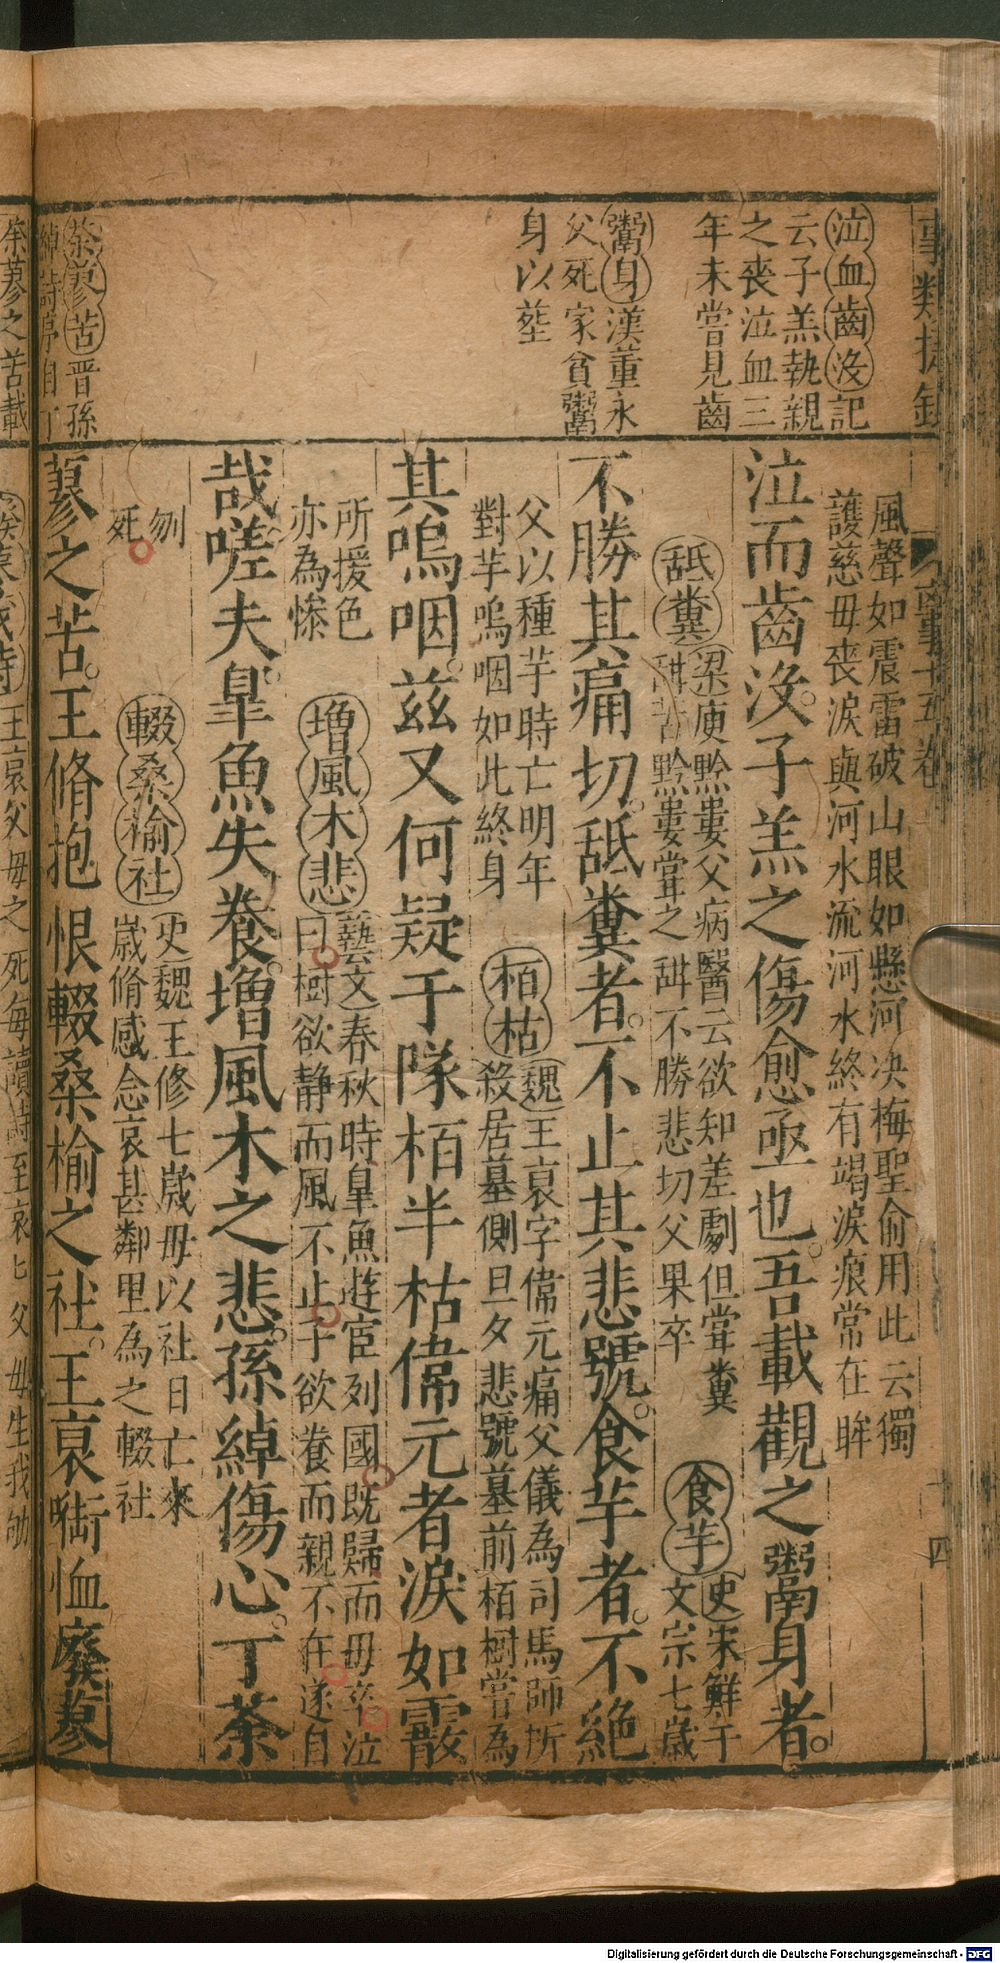 泣血齒没記
云子羔執親
之喪泣血三
年未嘗見齒
鬻身漢董永
父死家貧鬻
身以塟
荼蓼苦晋孫
綽詩停自丁
荼蓼之苦載
風聲如震雷破山眼如懸河决梅聖俞用此云獨
護慈母喪淚與河水流河水終有竭淚痕常在眸
泣而齒没子羔之傷愈亟也吾載觀之鬻身者
舐糞梁庾黔婁父病醫云欲知差劇但甞糞
甜苦黔婁甞之甜不勝悲切父果卒
食芋史宋鮮于
文宗七歲
不勝其痛切舐糞者不止其悲號食芋者不絶
父以種芋時亡明年
對芋嗚咽如此終身
栢枯魏王裒字偉元痛父儀為司馬師所
殺居墓側旦夕悲號墓前栢樹嘗為
其嗚咽兹又何疑于隊栢半枯偉元者淚如霰
所援色
亦為慘
增風木悲藝文春秋時臯魚遊宦列國既歸而母卒泣
曰樹欲静而風不止子欲養而親不在遂自
哉嗟夫臯魚失養增風木之悲孫綽傷心丁荼
刎
死
輟桑榆社史魏王修七歲母以社日亡來
歲脩感念哀甚鄰里為之輟社
蓼之苦王脩抱恨輟桑榆之社王裒啣恤廢蓼
王裒父母之死每讀詩至哀匕父母生我劬
十四
Digitalisierung gefördert durch die Deutsche Forschungsgemeinschaft - DFG